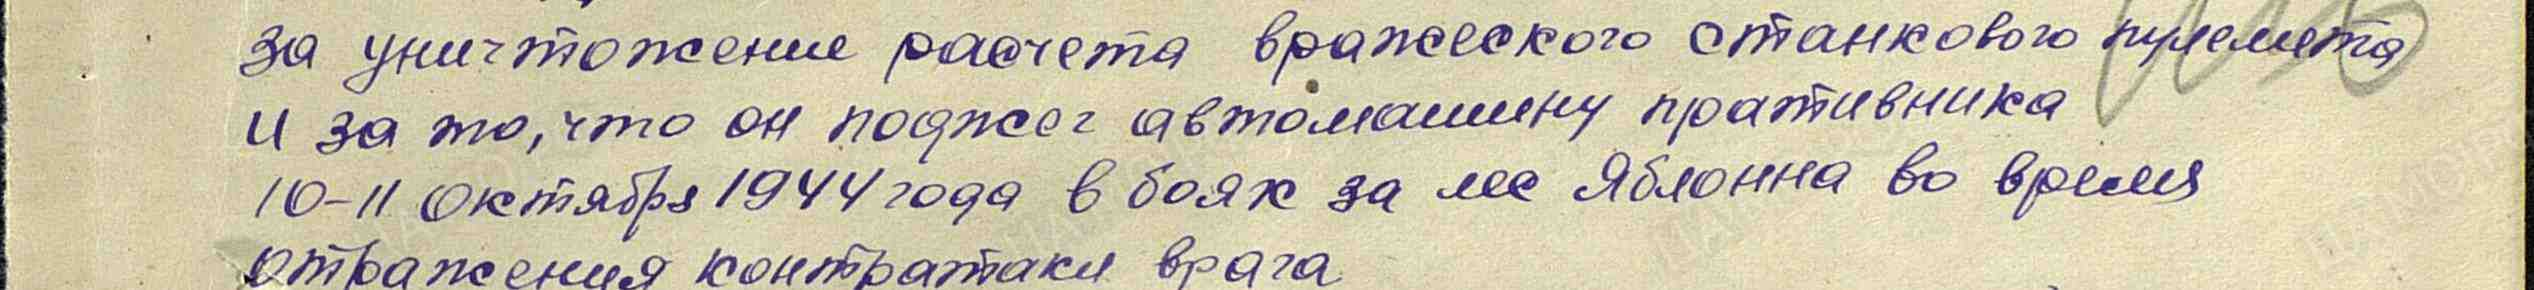 за уничтожение расчета вражеского станкового пулемета
и за то, что он поджег автомашину пративника
10-11 октября 1944 года в боях за мс Яблонна во время
отражения контратаки врага